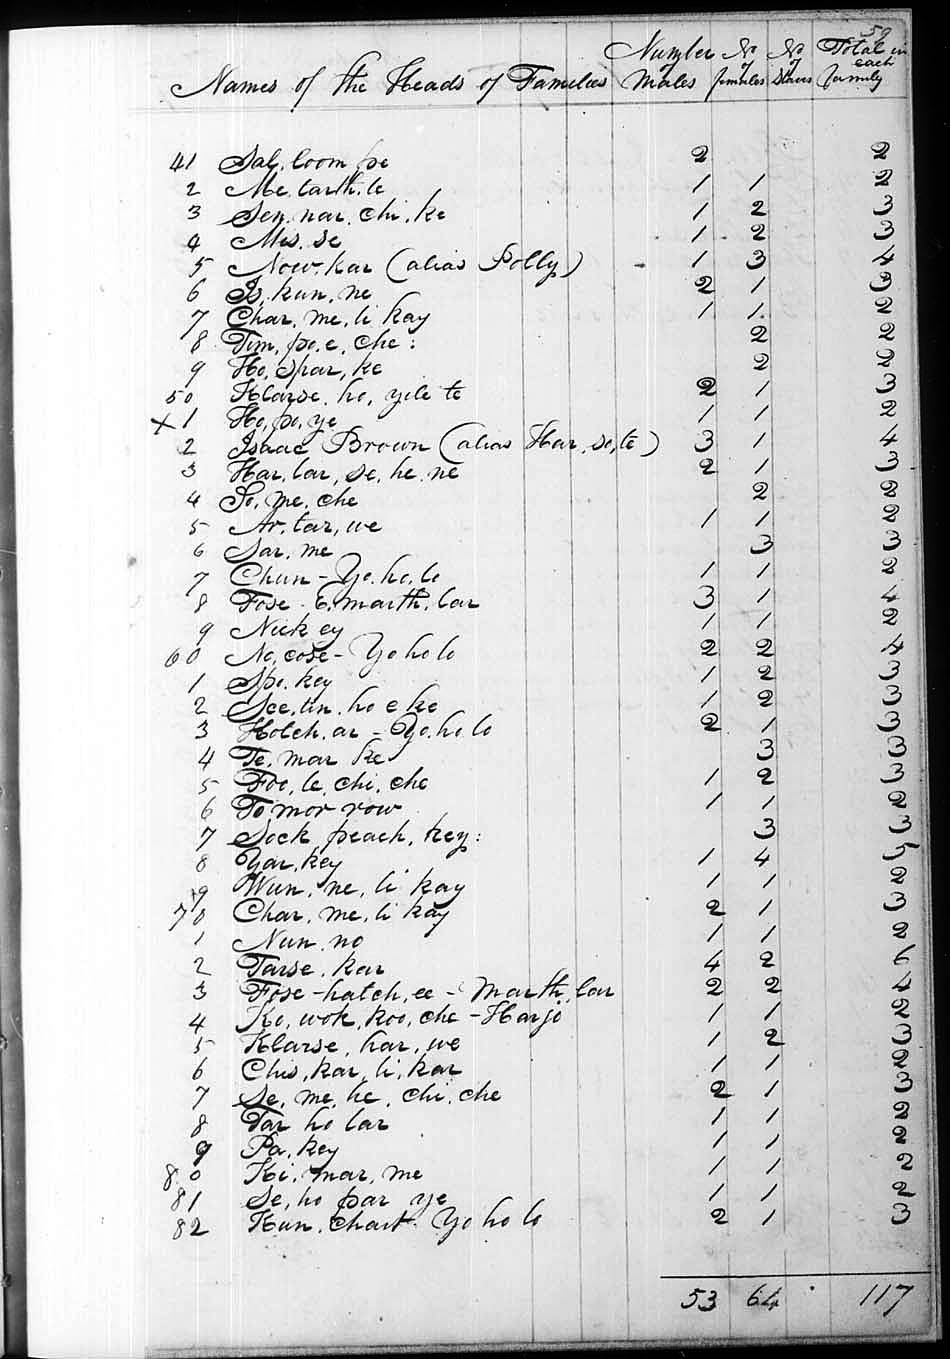 59
Names of the Heads of Families Number of Males No of females No of Slaves Total in each family
41 Sal, loom pe 2 2
2 Me. tarth. le 1 1 2
3 Sen. nar. chi. ke 1 2 3
4 Mis. se 1 2 3
5 Now. kar (alias Polly) 1 3 4
6 Is. kun, ne 2 1 3
7 Char, me, li kay 1 1 2
8 Tim, po, e, che: 2 2
9 Ho, spar, ke 2 2
50 Klarse, ho, yile te 2 1 3
x 1 Ho, po, ye 1 1 2
2 Isaac Brown (alias Har, so, te) 3 1 4
3 Har, lar, se, he, ne 2 1 3
4 So, me, che 2 2
5 Ar, tar, we 1 1 2
6 Sar, me 3 3
7 Chun - Yo, ho, lo 1 1 2
8 Fose - E, marth, lar 3 1 4
9 Nick ey 1 1 2
60 No, cose - Yo ho lo 2 2 4
1 Spo. key 1 2 3
2 See, tin, ho e ke 1 2 3
3 Hotch. ar - Yo. ho lo 2 1 3
4 Te, mar ke 3 3
5 Foo, le, chi, che 1 2 3
6 To mor row 1 1 2
7 Sock peach, key: 3 3
8 Yar, key 1 4 5
9 Wun, ne, li kay 1 1 2
70 Char, me, li kay 2 1 3
1 Nun, no 1 1 2
2 Tarse, kar 4 2 6
3 Fose - hatch, ee - Marth, lar 2 2 4
4 Ko, wok, koo, che - Harjo 1 1 2
5 Klarse, har, we 1 2 3
6 Chis, kar, li, kar 1 1 2
7 Se, me, he, chi, che 2 1 3
8 Tar ho lar 1 1 2
9 Pa, key 1 1 2
80 Ki, mar, me 1 1 2
81 Se, ho par ye 1 1 2
82 Kun, Chart - Yo ho lo 2 1 3
53 64 117